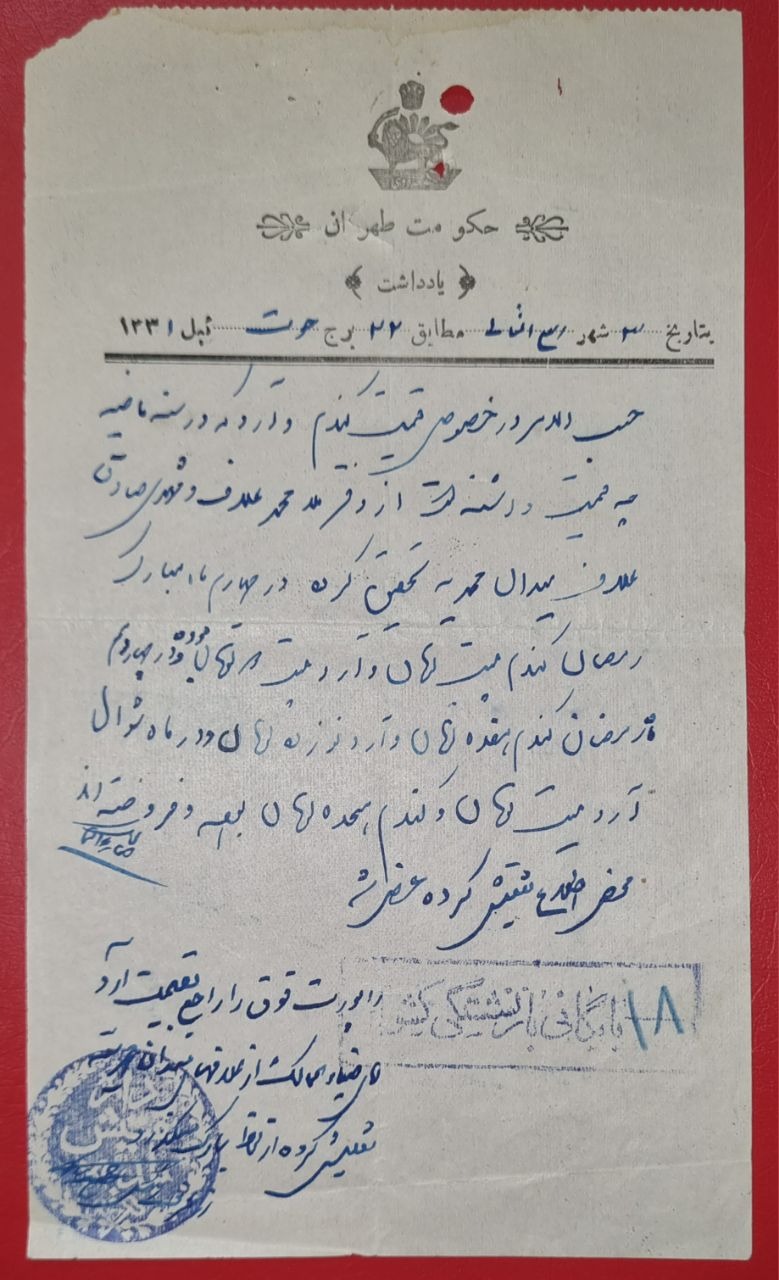 حکومت طهران
یادداشت
بتاریخ ۳ شهر ربیع الثانی مطابق ۲۲ برج حوت ئیل ۱۳۳۱
حسب الامر در خصوص قیمت گندم و آرد که در سنه ماضیه
چه قیمت داشته است از دفتر محمد علاف و مهدی صادق
علاف میدان محمدیه تحقیق کرده در چهاردهم ماه مبارک
رمضان گندم بیست تومان و آرد بیست تومان بوده و در چهاردهم
رمضان گندم هفده تومان و آرد نوزده تومان و در ماه شوال
آرد بیست تومان و گندم هیجده تومان بیعه و فروخته اند
محض اطلاع تفتیش کرده عرض شد
راپورت فوق را راجع بقیمت آرد
ضیاء الممالک از علافهای میدان
تفتیش کرده از نظر مبارک میگذرد
بایگانی بازنشستگی کشور
۱۸